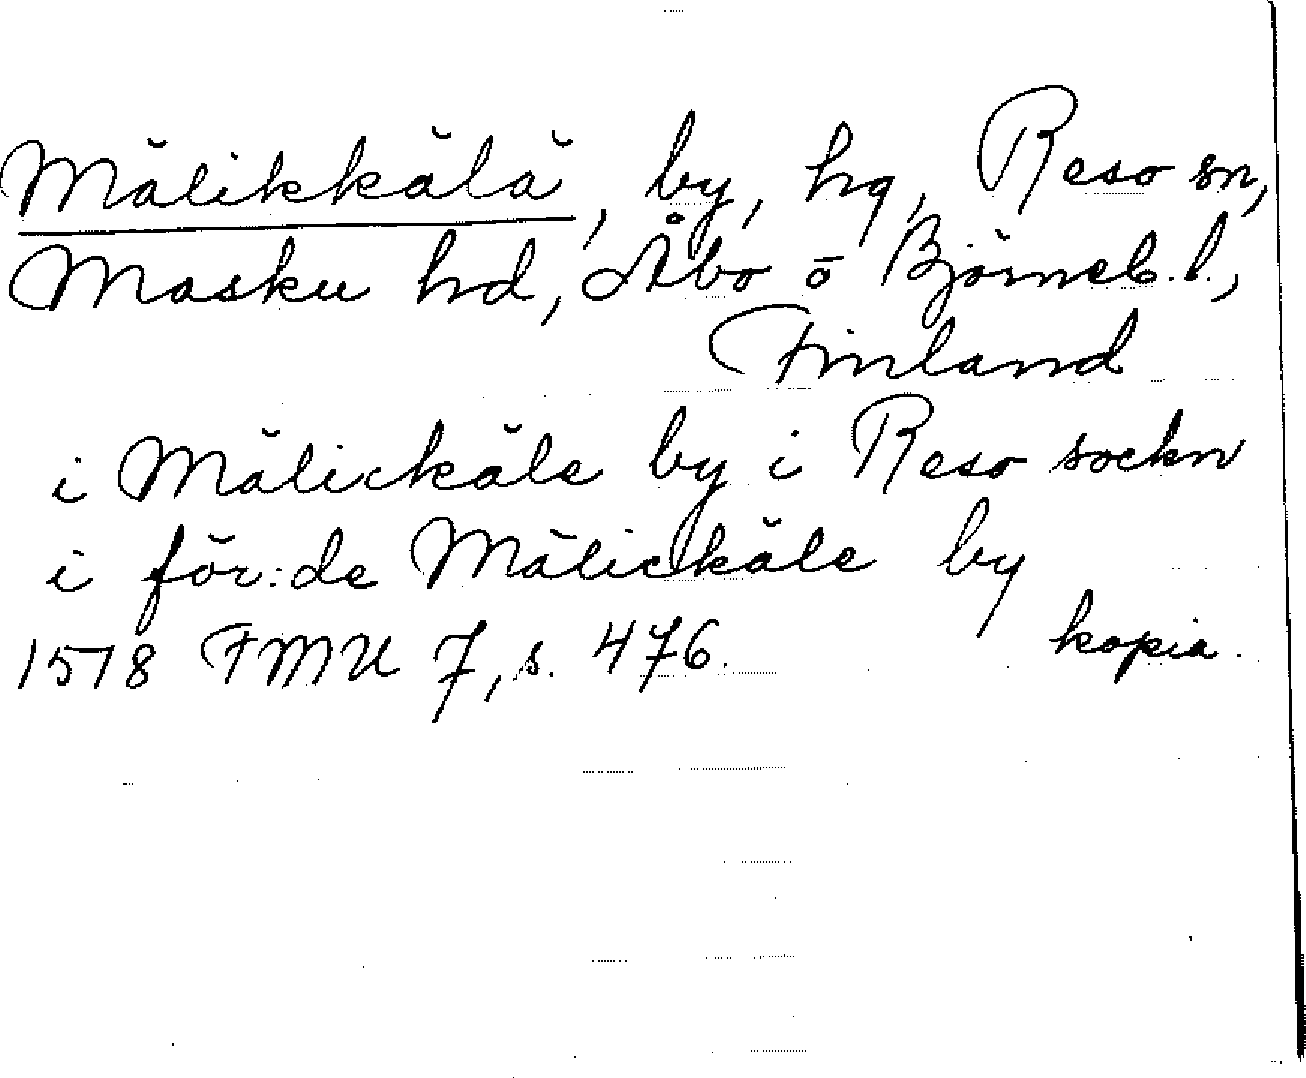 Mälikkälä, by, hg, Reso sn,
Masku hd, Åbo o Björneb. l.,
Finland
i Mälickäle by i Reso sockn
i för:de Mälickäle by
1578 FMU 7, s. 476. kopia.